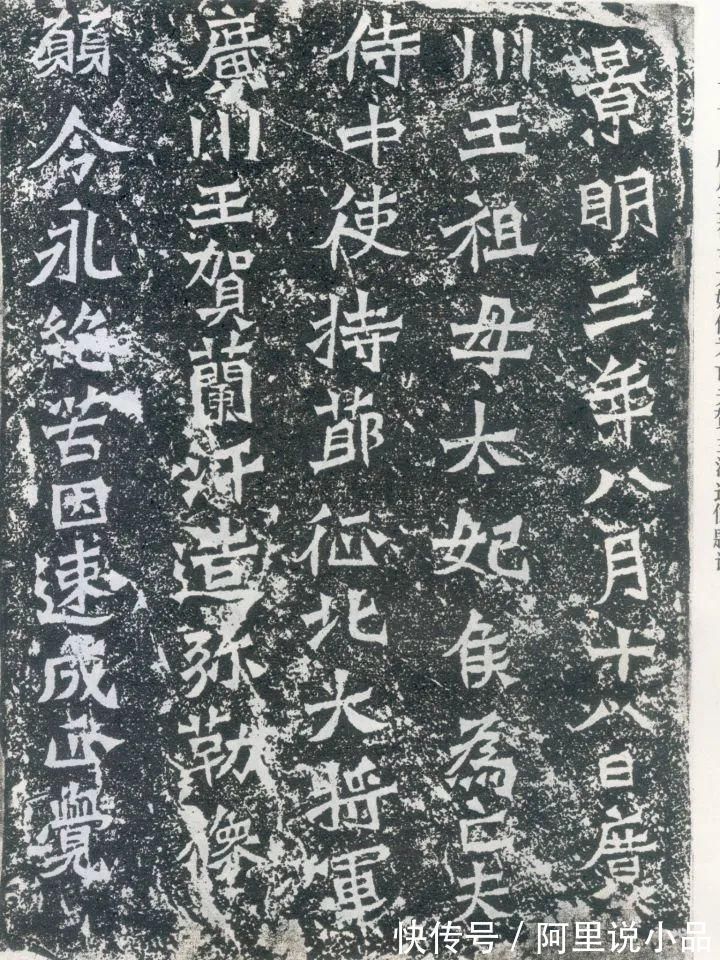 景明三年八月十八日廣
川王祖母太妃侯為亡夫
侍中使持節征北大將軍
廣川王賀蘭汗造弥勒像
願令永絕苦因速成正覺
快传号 / 阿里说小品